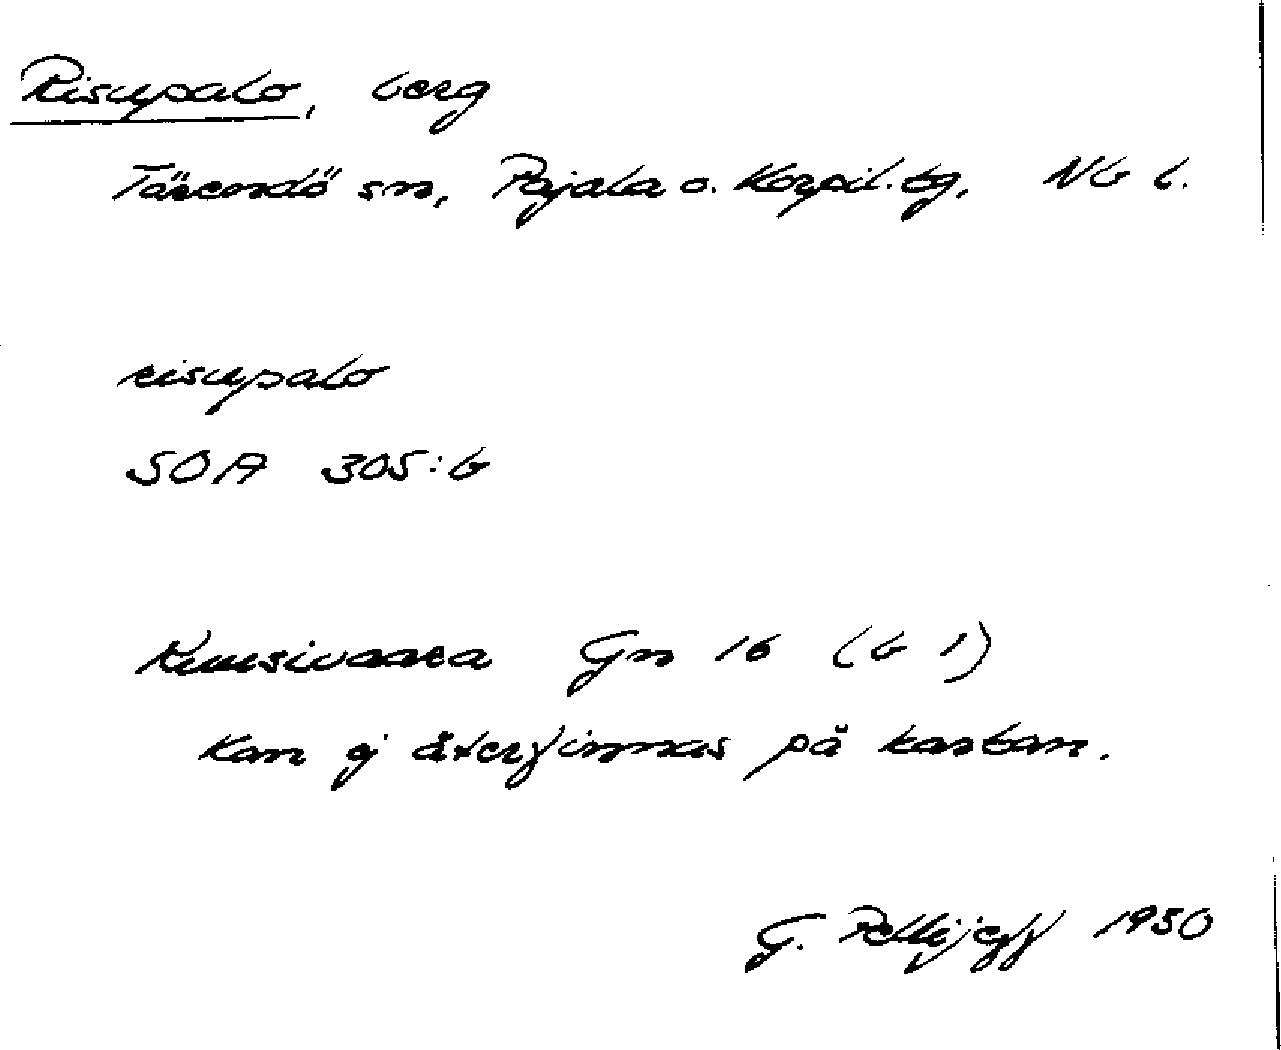 Risupalo, berg
Tärendö sn, Pajala o. Korpil. tg, Nb l.
risupalo
SOA 305:6
Kuusivaara Gn 16 (G 1)
Kan ej återfinnas på kartan.
G. Pellijeff 1950